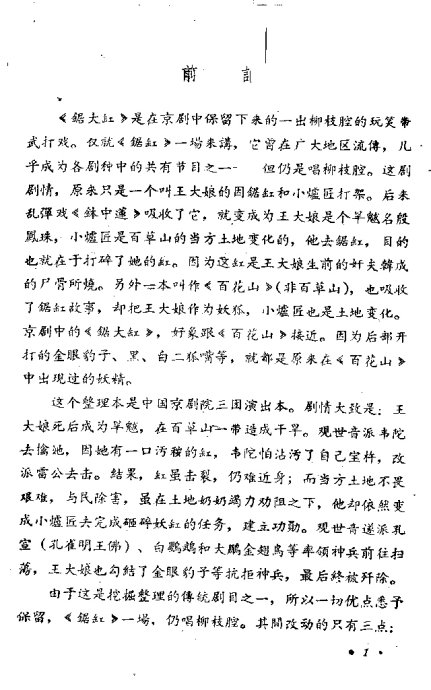 前 言
《鋸大缸》是在京剧中保留下来的一出柳枝腔的玩笑带
武打戏。仅就《鋸缸》一場来講，它曾在广大地区流傳，几
乎成为各剧种中的共有节目之一 但仍是唱柳枝腔。这剧
剧情，原来只是一个叫王大娘的因鋸缸和小爐匠打架。后来
乱彈戏《鉢中蓮》吸收了它，就变成为王大娘是个旱魃名殷
鳳珠，小爐匠是百草山的当方土地变化的，他去鋸缸，目的
也就在于打碎了她的缸。因为这缸是王大娘生前的奸夫韓成
的尸骨所燒。另外一本叫作《百花山》（非百草山），也吸收
了鋸缸故事，却把王大娘作为妖狐，小爐匠也是土地变化。
京剧中的《鋸大缸》，好象跟《百花山》接近。因为后部开
打的金眼豹子、黑、白二狐等，就都是原来在《百花山》
中出現过的妖精。
这个整理本是中国京剧院三团演出本。剧情大致是：王
大娘死后成为旱魃，在百草山一带造成干旱。观世音派韦陀
去擒她，因她有一口污穢的缸，韦陀怕沾污了自己宝杵，改
派雷公去击。結果，缸虽击裂，仍难近身；而当方土地不畏
艰难，与民除害，虽在土地奶奶竭力劝阻之下，他却依然变
成小爐匠去完成砸碎妖缸的任务，建立功勋。观世音遂派孔
宣（孔雀明王佛）、白鸚鵡和大鵬金翅鳥等率領神兵前往扫
蕩，王大娘也勾結了金眼豹子等抗拒神兵，最后終被歼除。
由于这是挖掘整理的傳統剧目之一，所以一切优点悉予
保留，《鋸缸》一場，仍唱柳枝腔。其間改动的只有三点：
• 1 •